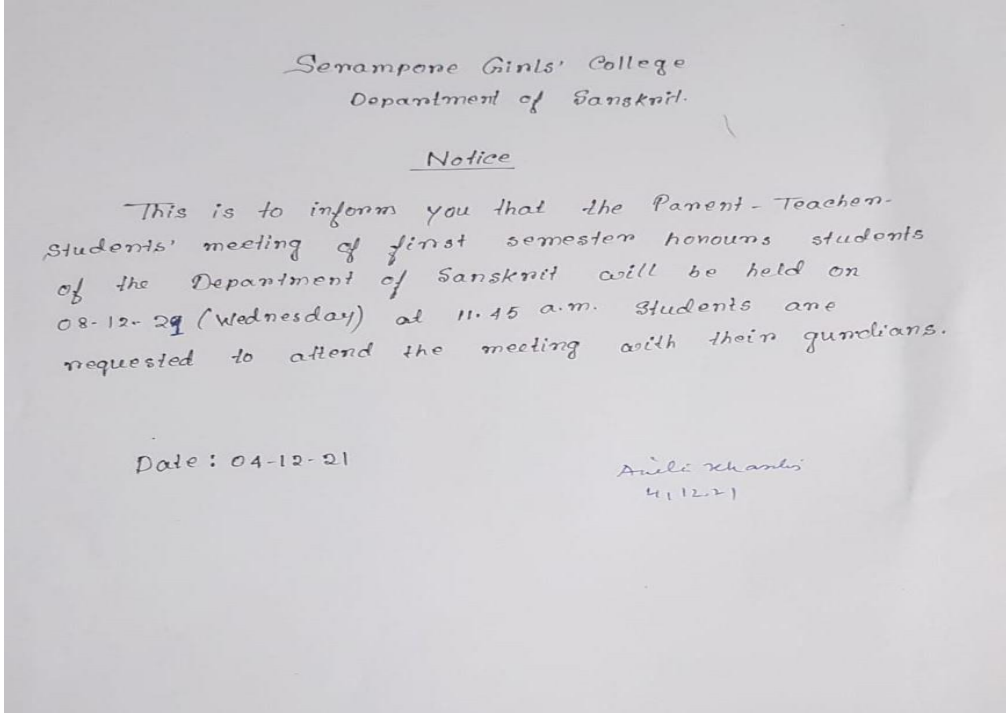 Serampore Girls' College
Department of Sanskrit.
Notice
This is to inform you that the Parent-Teacher-
Students' meeting of first semester honours students
of the Department of Sanskrit will be held on
08-12-21 (Wednesday) at 11.45 a.m. Students are
requested to attend the meeting with their gurdians.
Date: 04-12-21
4.12.21